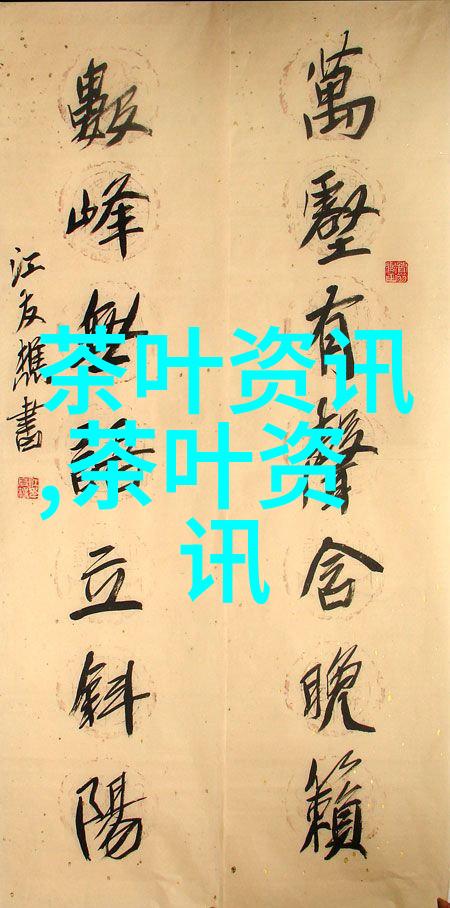 萬壑有聲含晚籟
數峰無語立斜陽
江友樵書
茶叶资讯
,茶叶资
讯